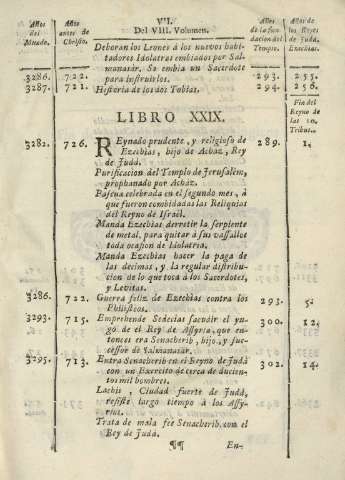 VII.
Del VIII. Volumen.
Años del Mundo.
Años antes de Christo.
Años de la fundacion del Templo.
Años de los Reyes de Judà. Ezechias.
Deboran los Leones à los nuevos habitadores Idolatras embiados por Salmanasàr. Se embia un Sacerdote
3286. 722. para instruirlos. 293. 255.
3287. 721. Historia de los dos Tobias. 294. 256.
LIBRO XXIX.
Fin del Reyno de las 10. Tribus.
3282. 726. REynado prudente, y religioso de 289. 1.
Ezechias, hijo de Achaz, Rey
de Judà.
Purificacion del Templo de Jerusalèn,
prophanado por Achàz.
Pascua celebrada en el segundo mes, à
que fueron combidadas las Reliquias
del Reyno de Israèl.
Manda Ezechias derretir la serpiente
de metal, para quitar à sus vassallos
toda ocasion de Idolatrìa.
Manda Ezechias hacer la paga de
las decimas, y la regular distribucion
de lo que toca à los Sacerdotes,
y Levitas.
3286. 722. Guerra feliz de Ezechias contra los 293. 5.
Philistèos.
3293. 715. Emprehende Sedecias sacudir el yu- 300. 12.
go de el Rey de Assyria, que en-
tonces era Senacherib, hijo, y suc-
cessor de Salmanasàr.
3295. 713. Entra Senacherib en el Reyno de Judà 302. 14.
con un Exercito de cerca de ducien-
tos mil hombres.
Lachis, Ciudad fuerte de Judà,
resiste largo tiempo à los Assy-
rios.
Trata de mala fee Senacherib con el
Rey de Judà.
¶¶ En-